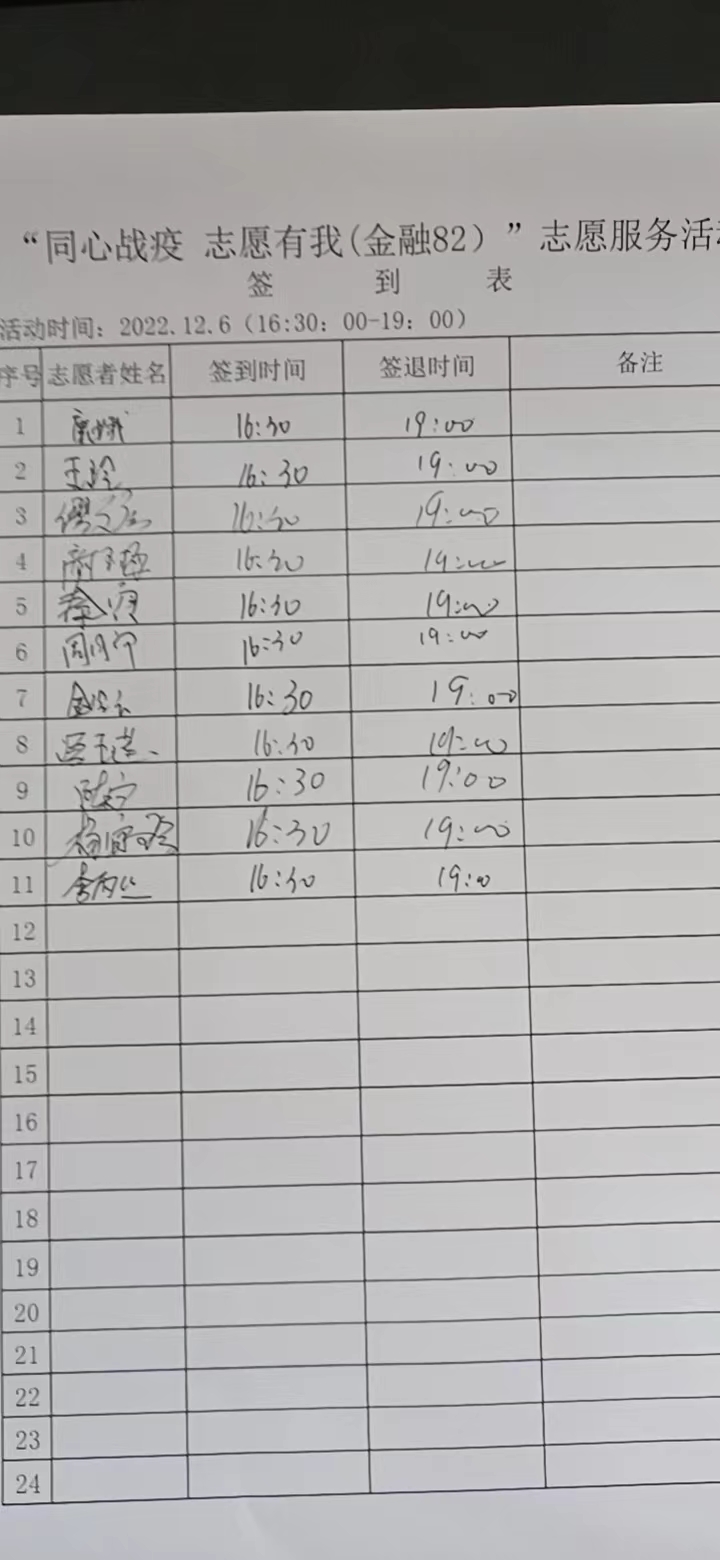 “同心战疫 志愿有我(金融82）”志愿服务活
签 到 表
活动时间：2022.12.6（16:30：00-19：00）
序号 志愿者姓名 签到时间 签退时间 备注
1 16:30 19:00
2 王玲 16:30 19:00
3 16:30 19:00
4 16:30 19:00
5 16:30 19:00
6 16:30 19:00
7 16:30 19:00
8 16:30 19:00
9 16:30 19:00
10 16:30 19:00
11 16:30 19:00
12
13
14
15
16
17
18
19
20
21
22
23
24